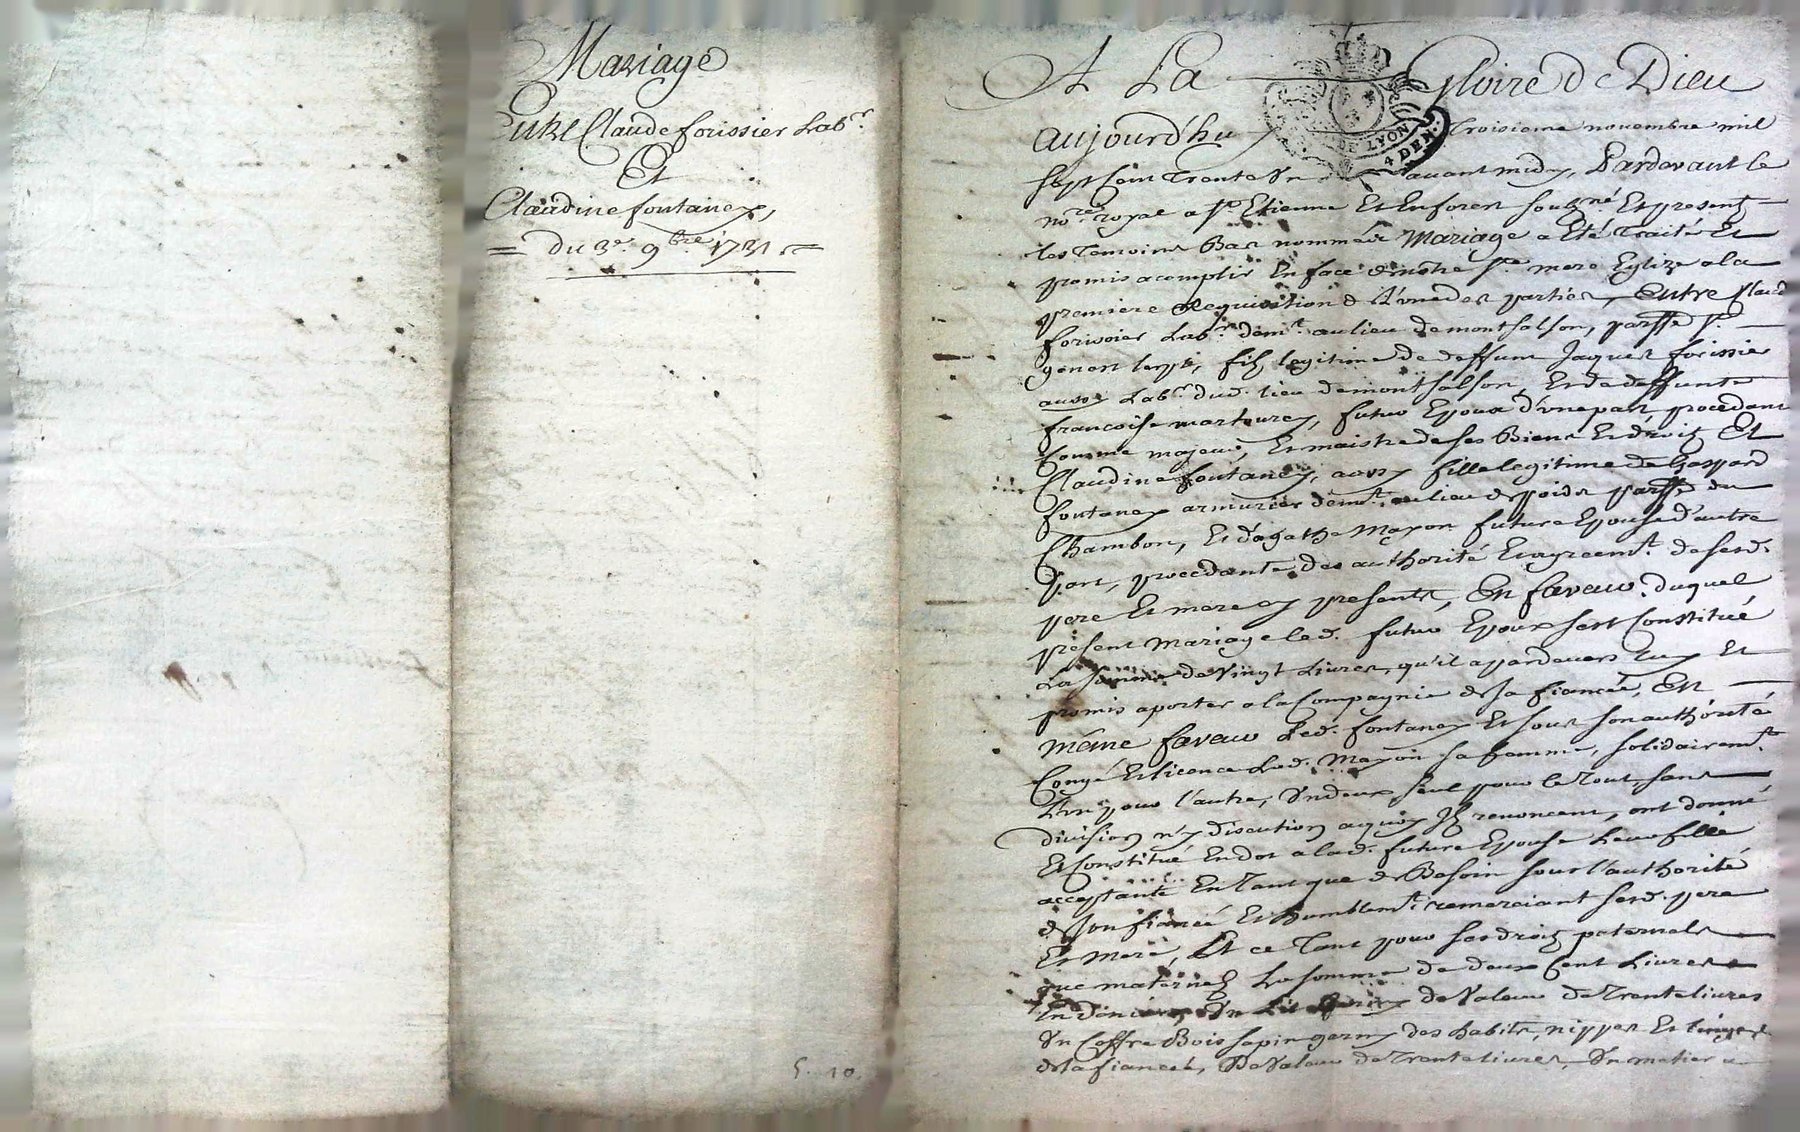 Mariage
Entre Claude forissier Lab.r
Et
Claudine fontaney,
= du 3.e 9.bre 1731. =
5. 10.
A La Gloire de Dieu
DE LYON
4 DEN.
aujourd'huy troisieme novembre mil
sept Cent Trente Un avant midy, Pardevant le
no.re royal a S.t Etienne Et Enforest soubz.né Et presents
les Temoins Bas nommés Mariage a Eté Traité Et
promis acomplir En face de nostre S.te mere Eglize a la
premiere Requisition de L'une des parties, Entre Claude
forissier Lab.r dem.t au lieu de montsalson, parsse S.t
genest lerpt, filz legitime de deffunt Jaques forissier
aussy Lab.r dud. lieu de montsalson, Et de deffunte
francoise martourey, futur Epoux d'une part, procedant
Comme majeur, Et maistre de ses Biens Et droitz Et
Claudine fontaney, aussy fille legitime de Gaspard
fontaney armurier dem.t au lieu de poids parsse du
Chambon, Et d'agathe Mayon future Epouse d'autre
part, procedante des authorité Et agreem.t de sesd.
pere Et mere cy presents, En faveur duquel
present Mariage led. futur Epoux s'est Constitué
La somme de Vingt Livres, qu'il a pardevers luy Et
promis aporter a la Compagnie de sa fiancée, En
même faveur Led. fontaney Et sous son authorité
Congé Et licence Lad. Mayon sa femme, solidairem.t
L'un pour l'autre, Un deux seul pour le Tout, sans
division n'y discution aquoy Ilz renoncent, ont donné
Et Constitué En dot a lad. future Epouse Leur fille
acceptante En Tant que de Besoin sous l'authorité
de son fiancé Et humblem.t remerciant sesd. pere
Et mere, Et ce Tant pour ses droitz paternels
que maternelz La somme de deux Cent Livres
En deniers, Un Lit garny de Valeur de Trente livres
Un Coffre Bois sapin garny des habits, nippes Et linges
de la fiancée, De Valeur de Trente livres, Un metier a